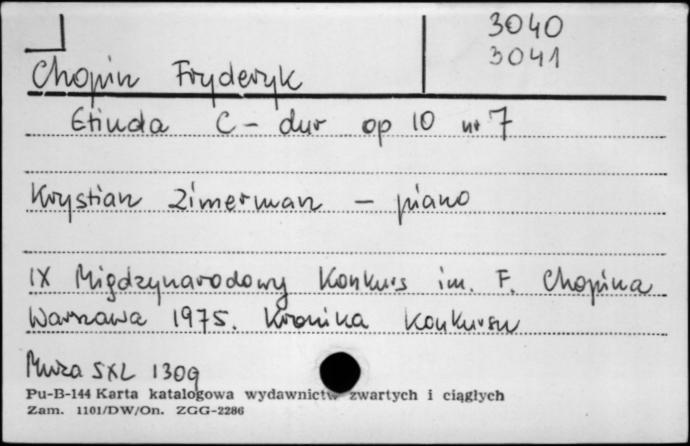 3040
3041
Chopin Fryderyk
Etiuda C-dur op 10 nr 7
Krystian Zimerman – piano
IX Międzynarodowy Konkurs im. F. Chopina
Warszawa 1975. Kronika Konkursu
Muza SXL 1309
Pu-B-144 Karta katalogowa wydawnictw zwartych i ciągłych
Zam. 1101/DW/On. ZGG-2286